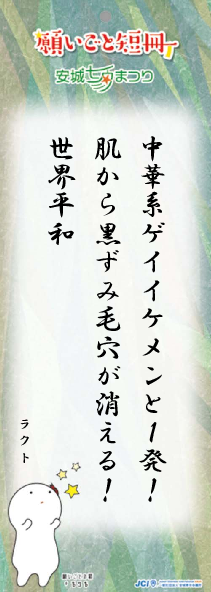 願いごと短冊
安城七夕まつり
中華系ゲイイケメンと1発！
肌から黒ずみ毛穴が消える！
世界平和
ラクト
JCI